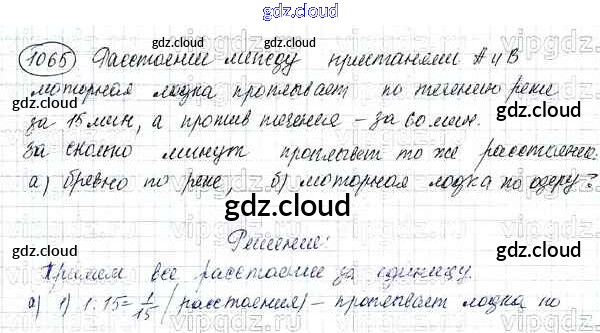 gdz.cloud
1065 Расстояние между пристанями А и В
моторная лодка проплывает по течению реки
за 15 мин, а против течения – за 60 мин.
За сколько минут проплывет то же расстояние:
а) бревно по реке, б) моторная лодка по озеру?
gdz.cloud
Решение:
Примем все расстояние за единицу.
а) 1) 1:15=1/15 (расстояния) – проплывает лодка по